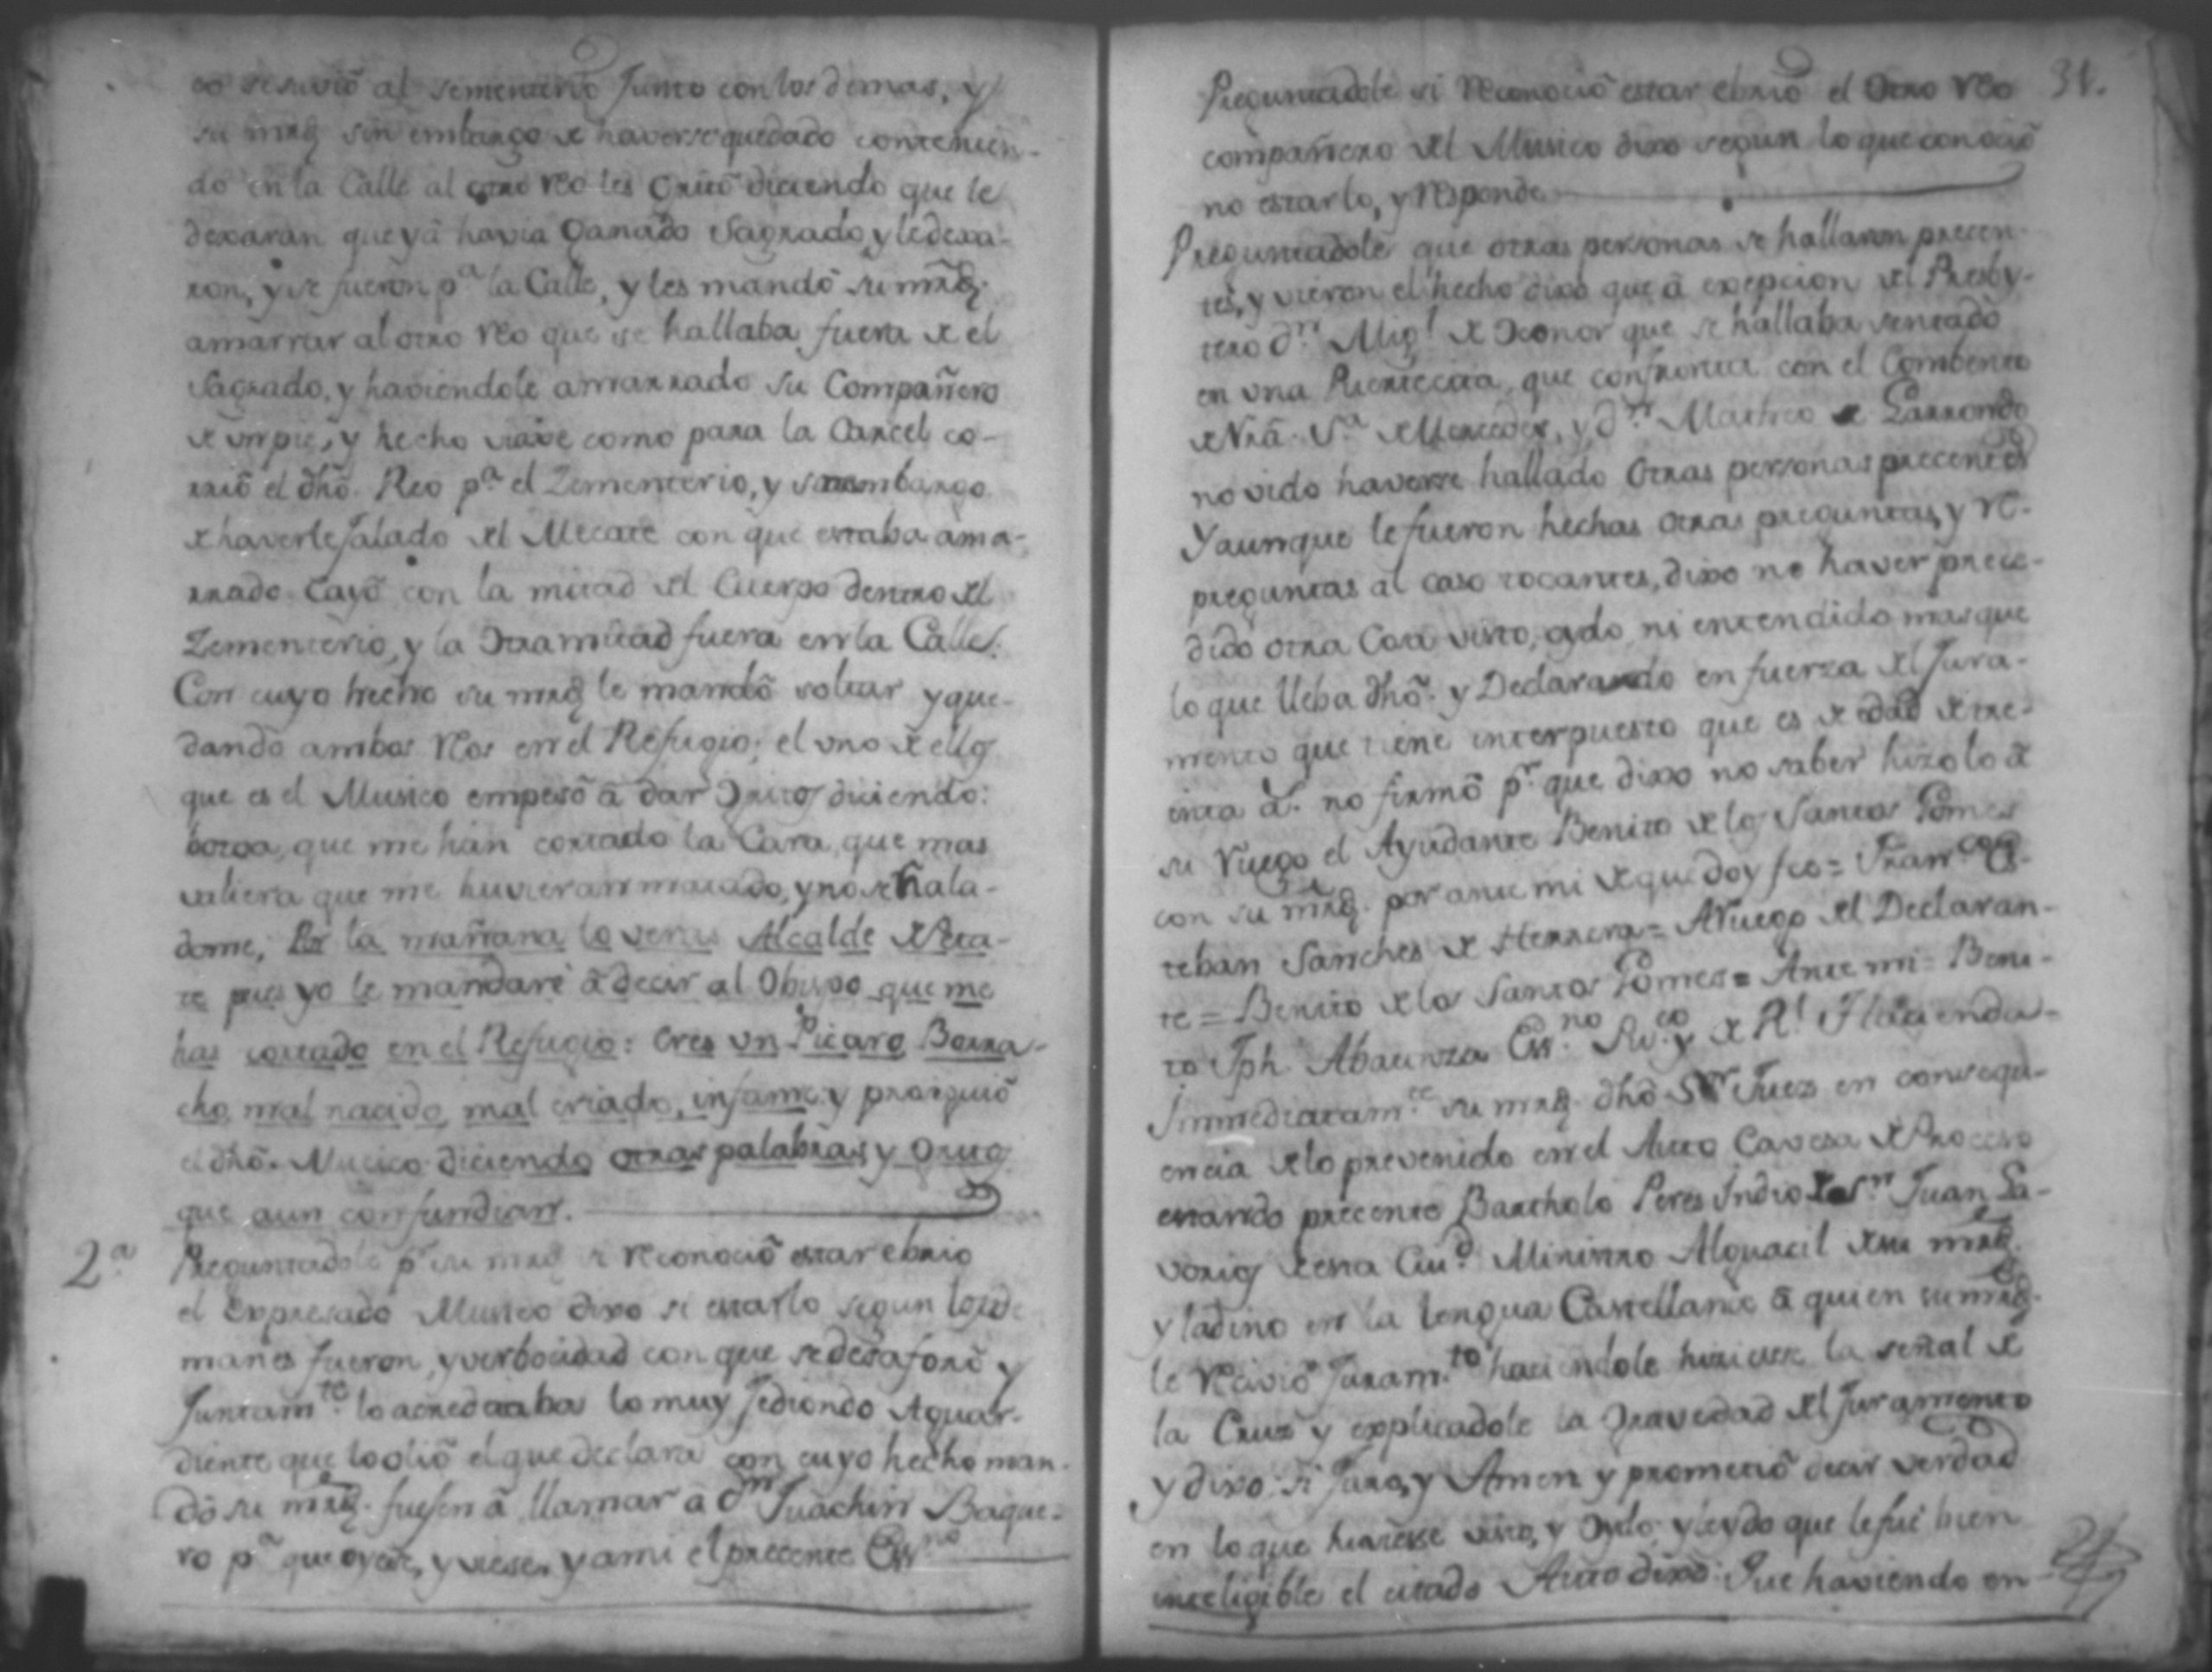 co se suvió al sementerio Junto con los demas, y
su mrd sin embargo de haverse quedado contenien-
do en la Calle al otro Reo les Gritó diciendo que le
dexaran que yá havia Ganado Sagrado, y le dexa-
ron, y se fueron pª la Calle, y les mandó su mrd.
amarrar al otro Reo que se hallaba fuera de el
Sagrado, y haviendole amarrado su Compañero
de un pie, y hecho viaxe como para la Carcel co-
rrió el dhō. Reo pª el Zementerio, y sinembargo
de haverle Jalado del Mecate con que estaba ama-
rrado Cayó con la mitad del Cuerpo dentro del
Zementerio, y la Otra mitad fuera en la Calle.
Con cuyo hecho su mrd le mandó soltar y que-
dando ambos Reos en el Refugio; el uno de ellos
que es el Musico empesó á dar Gritos diciendo:
que me hán cortado la Cara, que mas
valiera que me huvieran matado, y no señala-
dome, Por la mañana lo veras Alcalde de
te pues yo le mandaré á decir al Obispo que me
has cortado en el Refugio: eres un Picaro Borra-
cho, mal nacido, mal criado, infame: y prosiguió
el dhō. Mucico diciendo otras palabras y Gritos
que aun confundian.
2.ª Preguntadole pr su mrd si Reconoció estar ebrio
el Expresado Musico dixo si estarlo segun los de
manes fueron, y verbocidad con que se desaforó y
Juntamte. lo acreditaba lo muy Jediondo Aguar-
diente que lo olió el que declara con cuyo hecho man-
dó su mrd. fuesen á llamar á dn Juachin Baque-
ro pª que oyese, y viese, y a mi el precente Essno
31.
Preguntadole si Reconoció estar ebrio el Otro Reo
compañero del Musico dixo segun lo que conoció
no estarlo, y Responde
Preguntadole que otras personas se hallaron precen-
tes, y vieron el hecho dixo que á exepcion del Presby-
tero dn. Migl de Oconor que se hallaba sentado
en una que confronta con el Combento
de Nrã. Sª de Mercedes, y dn Matheo de Larrondo
no vido haverse hallado Otras personas precentes
Y aunque le fueron hechas otras preguntas, y re-
preguntas al caso tocantes, dixo no haver prece-
dido otra Cosa visto, oydo, ni entendido mas que
lo que lleba dhō. y Declarando en fuerza del Jura-
mento que tiene interpuesto que es de edad de tre-
inta as. no firmó pr. que dixo no saber hizolo á
su Ruego el Ayudante Benito de los Santos Gomes
con su mrd. por ante mi de que doy fee = Fran.co Es-
teban Sanches de Herrera = A Ruego del Declaran-
te = Benito de los Santos Gomes = Ante mi = Beni-
to Jph. Abaunza Essno. Puco. y de Rl Hacienda
Immediatamte su mrd. dhō Sor Juez en consequ-
encia de lo prevenido en el Auto Cavesa de Proceso
estando precente Bartholo Peres Indio de Sn Juan La-
vorios de esta Ciud. Ministro Alguacil de su mrd.
y ladino en la lengua Castellana á quien su mrd.
le Recivió Juram.to haciendole hiciese la señal de
la Cruz y explicadole la Gravedad del Juramento
y dixo: si Juro, y Amen y prometió decir verdad
en lo que huviesse visto, y Oydo, y leydo que le fue bien
inteligible el citado Auto dixo: Que haviendo en